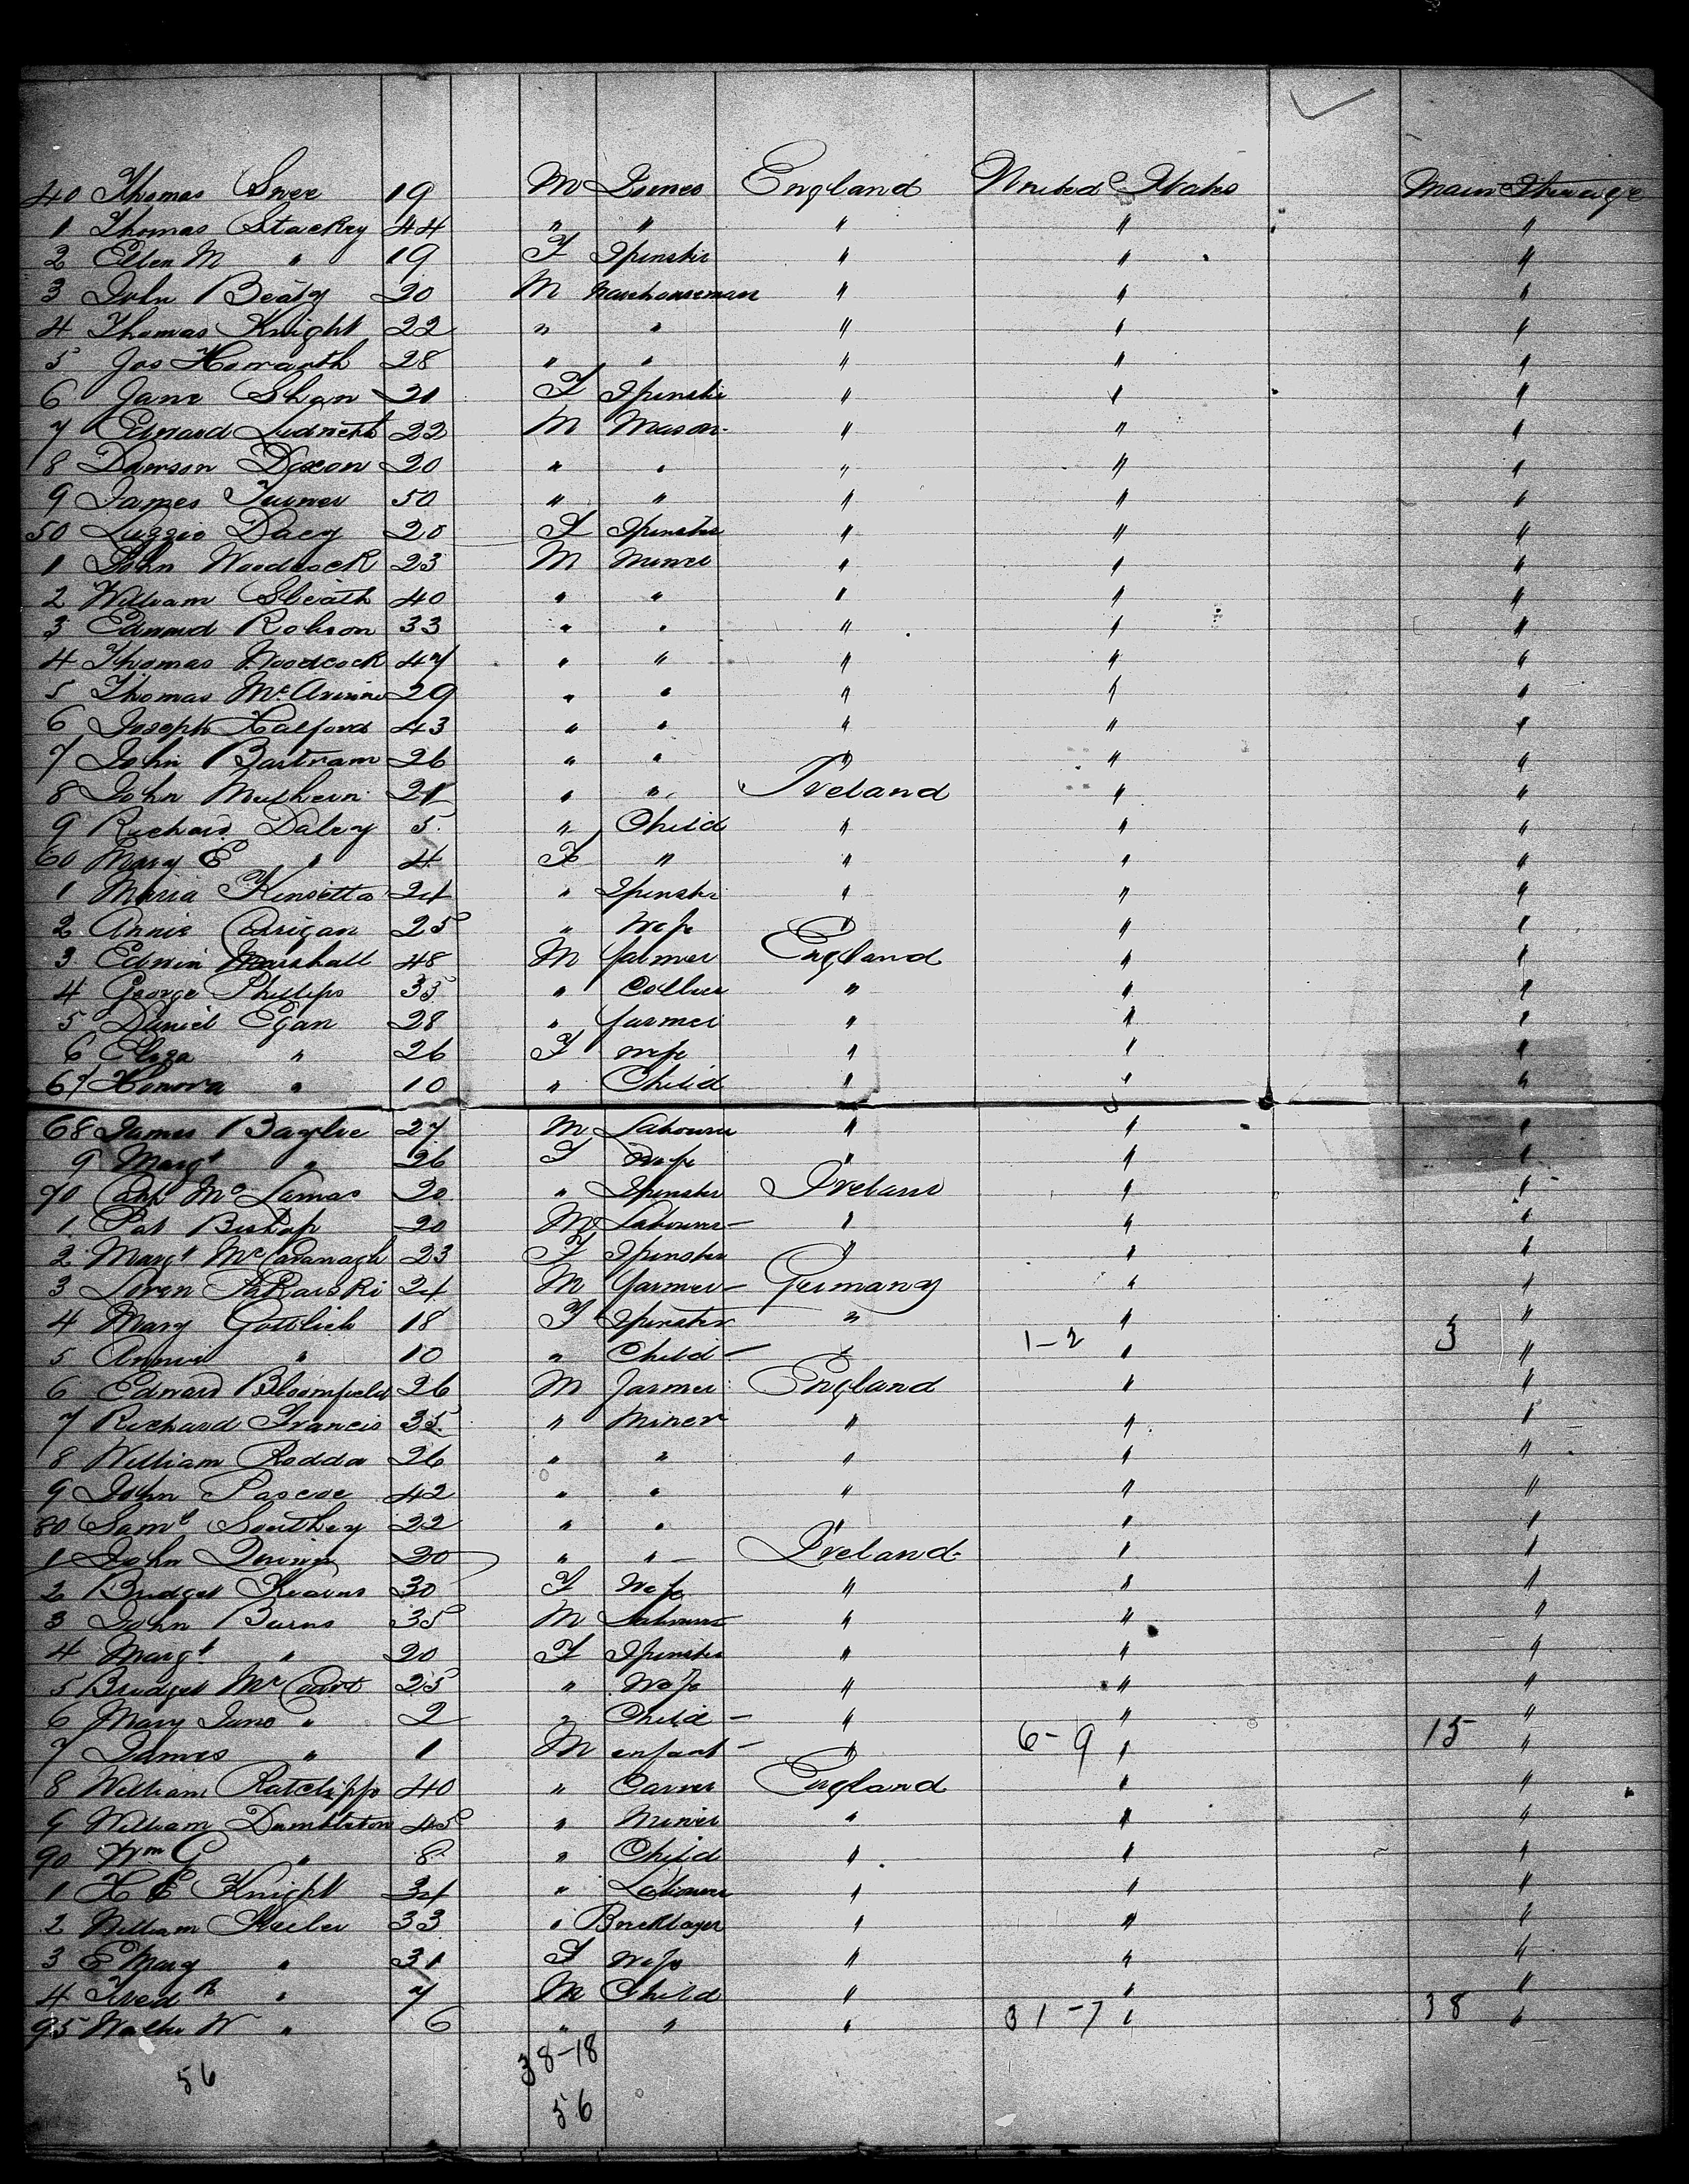 40 Thomas Snee 19 M England United States Main Steerage
1 Thomas Stackey 44 " " " " "
2 Ellen M " 19 F Spinster " " "
3 John Beaty 20 M Warehouseman " " "
4 Thomas Knight 22 " " " " "
5 Jos Howarth 28 " " " " "
6 Jane Shan 21 F Spinster " " "
7 Edward 22 M Mason " " "
8 Dawson Dixon 20 " " " " "
9 James Turner 50 " " " " "
50 Lizzie Dacy 20 F Spinster " " "
1 John Woodcock 23 M Miner " " "
2 William Sleath 40 " " " " "
3 Edward Robson 33 " " " " "
4 Thomas Woodcock 47 " " " " "
5 Thomas 29 " " " " "
6 Joseph Halford 43 " " " " "
7 John Bartram 26 " " " " "
8 John Mulhern 21 " " Ireland " "
9 Richard Daley 5 " Child " " "
60 Mary E " 4 F " " " "
1 Maria Kinsetta 24 " Spinster " " "
2 Annie Corrigan 25 " Wife " " "
3 Edwin Marshall 48 M farmer England " "
4 George Phillips 35 " Collier " " "
5 Daniel Egan 28 " farmer " " "
6 Eliza " 26 F wife " " "
67 Honora " 10 " Child " " "
68 James Baylie 27 M Labourer " " "
9 Margt " 26 F Wife " " "
70 Cath Mc 20 " Spinster Ireland " "
1 Pat Bishop 20 M Labourer " " "
2 Margt McCavanagh 23 F Spinster " " "
3 24 M farmer Germany " "
4 Mary Gottlieb 18 F Spinster " " "
5 Annie " 10 " Child " 1-2 " 3 "
6 Edward Bloomfield 26 M farmer England " "
7 Richard Francis 35 " Miner " " "
8 William Rodda 26 " " " " "
9 John Pascoe 42 " " " " "
80 Saml Southey 22 " " " " "
1 John 20 " " Ireland " "
2 Bridget Kearns 30 F Wife " " "
3 John Burns 35 M Labourer " " "
4 Margt " 20 F Spinster " " "
5 Bridget McCourt 25 " Wife " " "
6 Mary Jane " 2 " Child " " "
7 James " 1 M infant " 6-9 " 15 "
8 William Ratcliffe 40 " Carver England " "
9 William Dumbleton 45 " Miner " " "
90 Wm G " 8 " Child " " "
1 H E Knight 34 " Labourer " " "
2 William Keeler 33 " Bricklayer " " "
3 E Mary " 31 F Wife " " "
4 Fred R " 7 M Child " " "
95 Walter W " 6 " " " 31-7 " 38 "
56 38-18
56